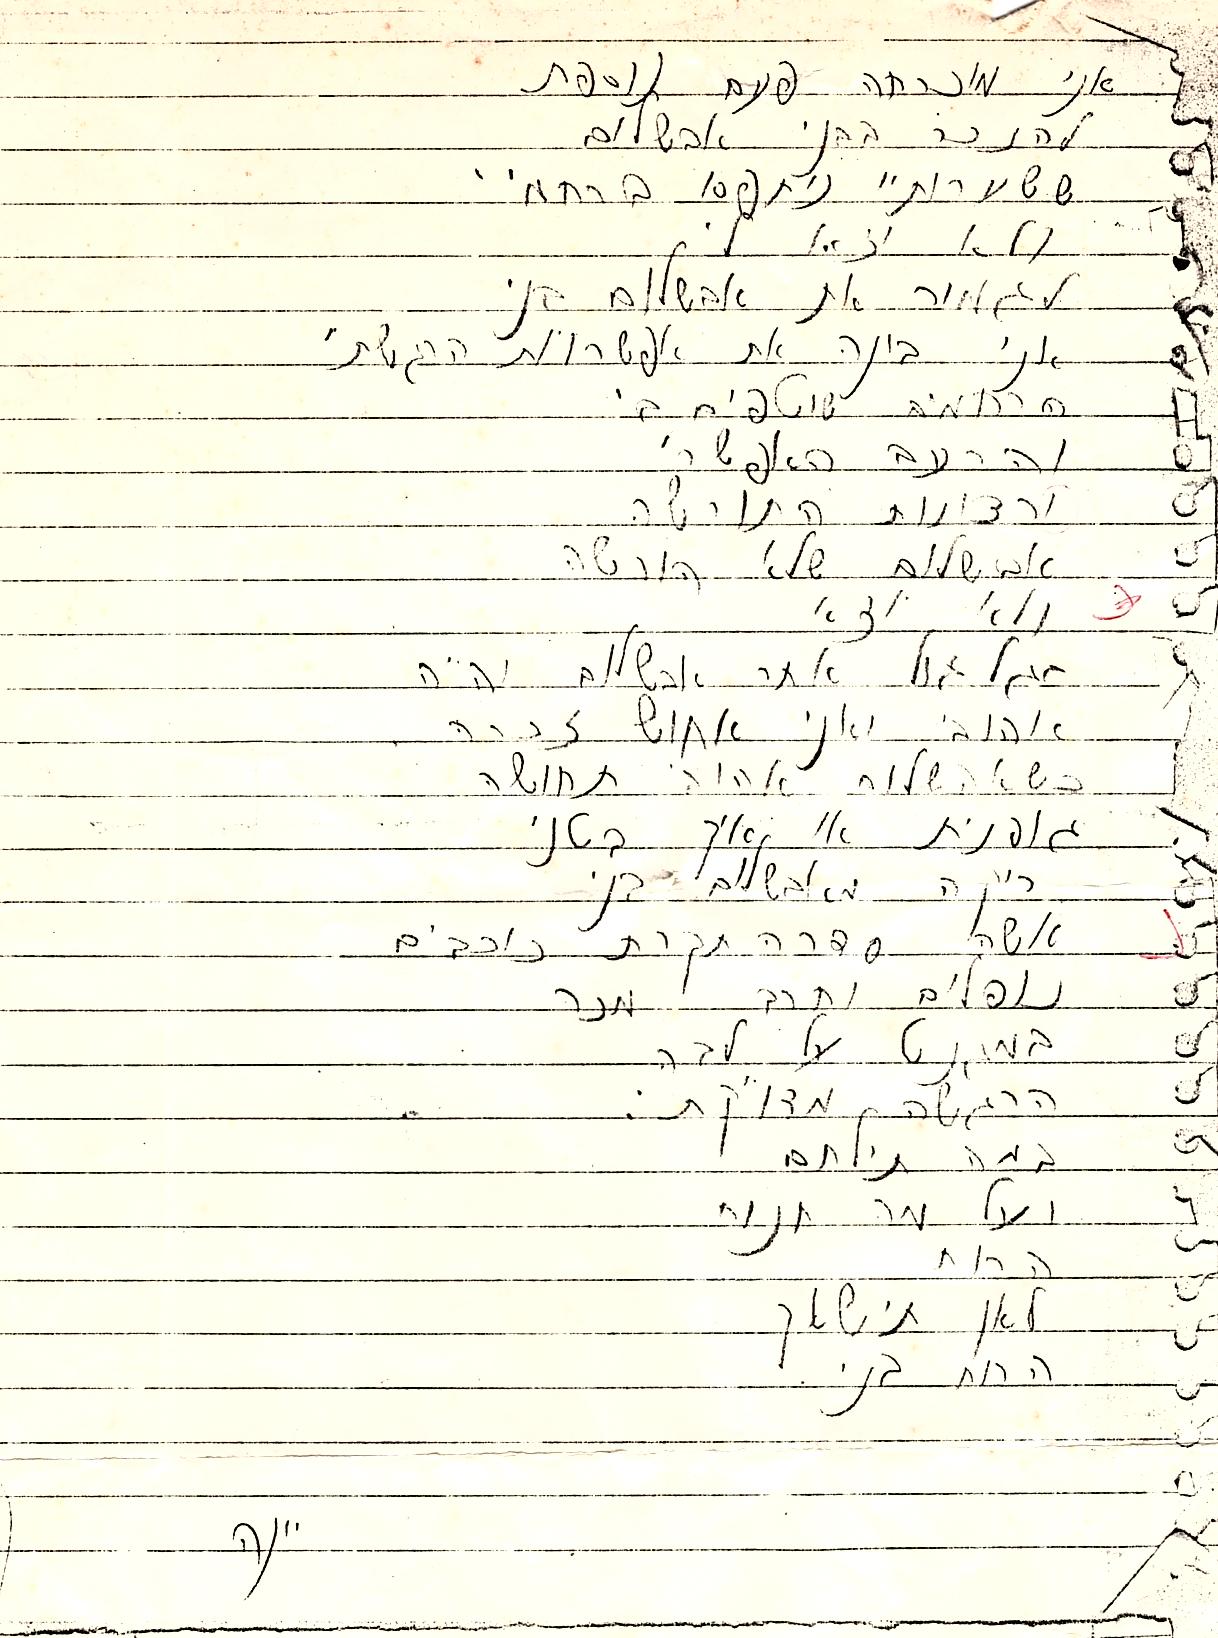 אני מוכרחה פעם נוספת
להזכר בבני אבשלום
ששערותיו ניתפסו ברחמי
ולא יצא לי
לגמור את אבשלום בני
אני בונה את אפשרויות הרגשתי
הרחמים שוטפים בי
והרעב האפשרי
ורצונות התורשה
אבשלום שלא הורשה
ולא יצא
בגלגול אחר אבשלום יהיה
אהובי ואני אחוש זכרה
כשאבשלום אהובי תחושה
גופנית או איך בטני
ריקה מאבשלום בני
אשה סדרה תקרת כוכבים
נופלים וחרב מכה
במגנט על לבה
הרגשה מדויקת:
במה תילחם
ועל מה תנוח
הרוח
לאן תישאך
הרוח בני.
יונה